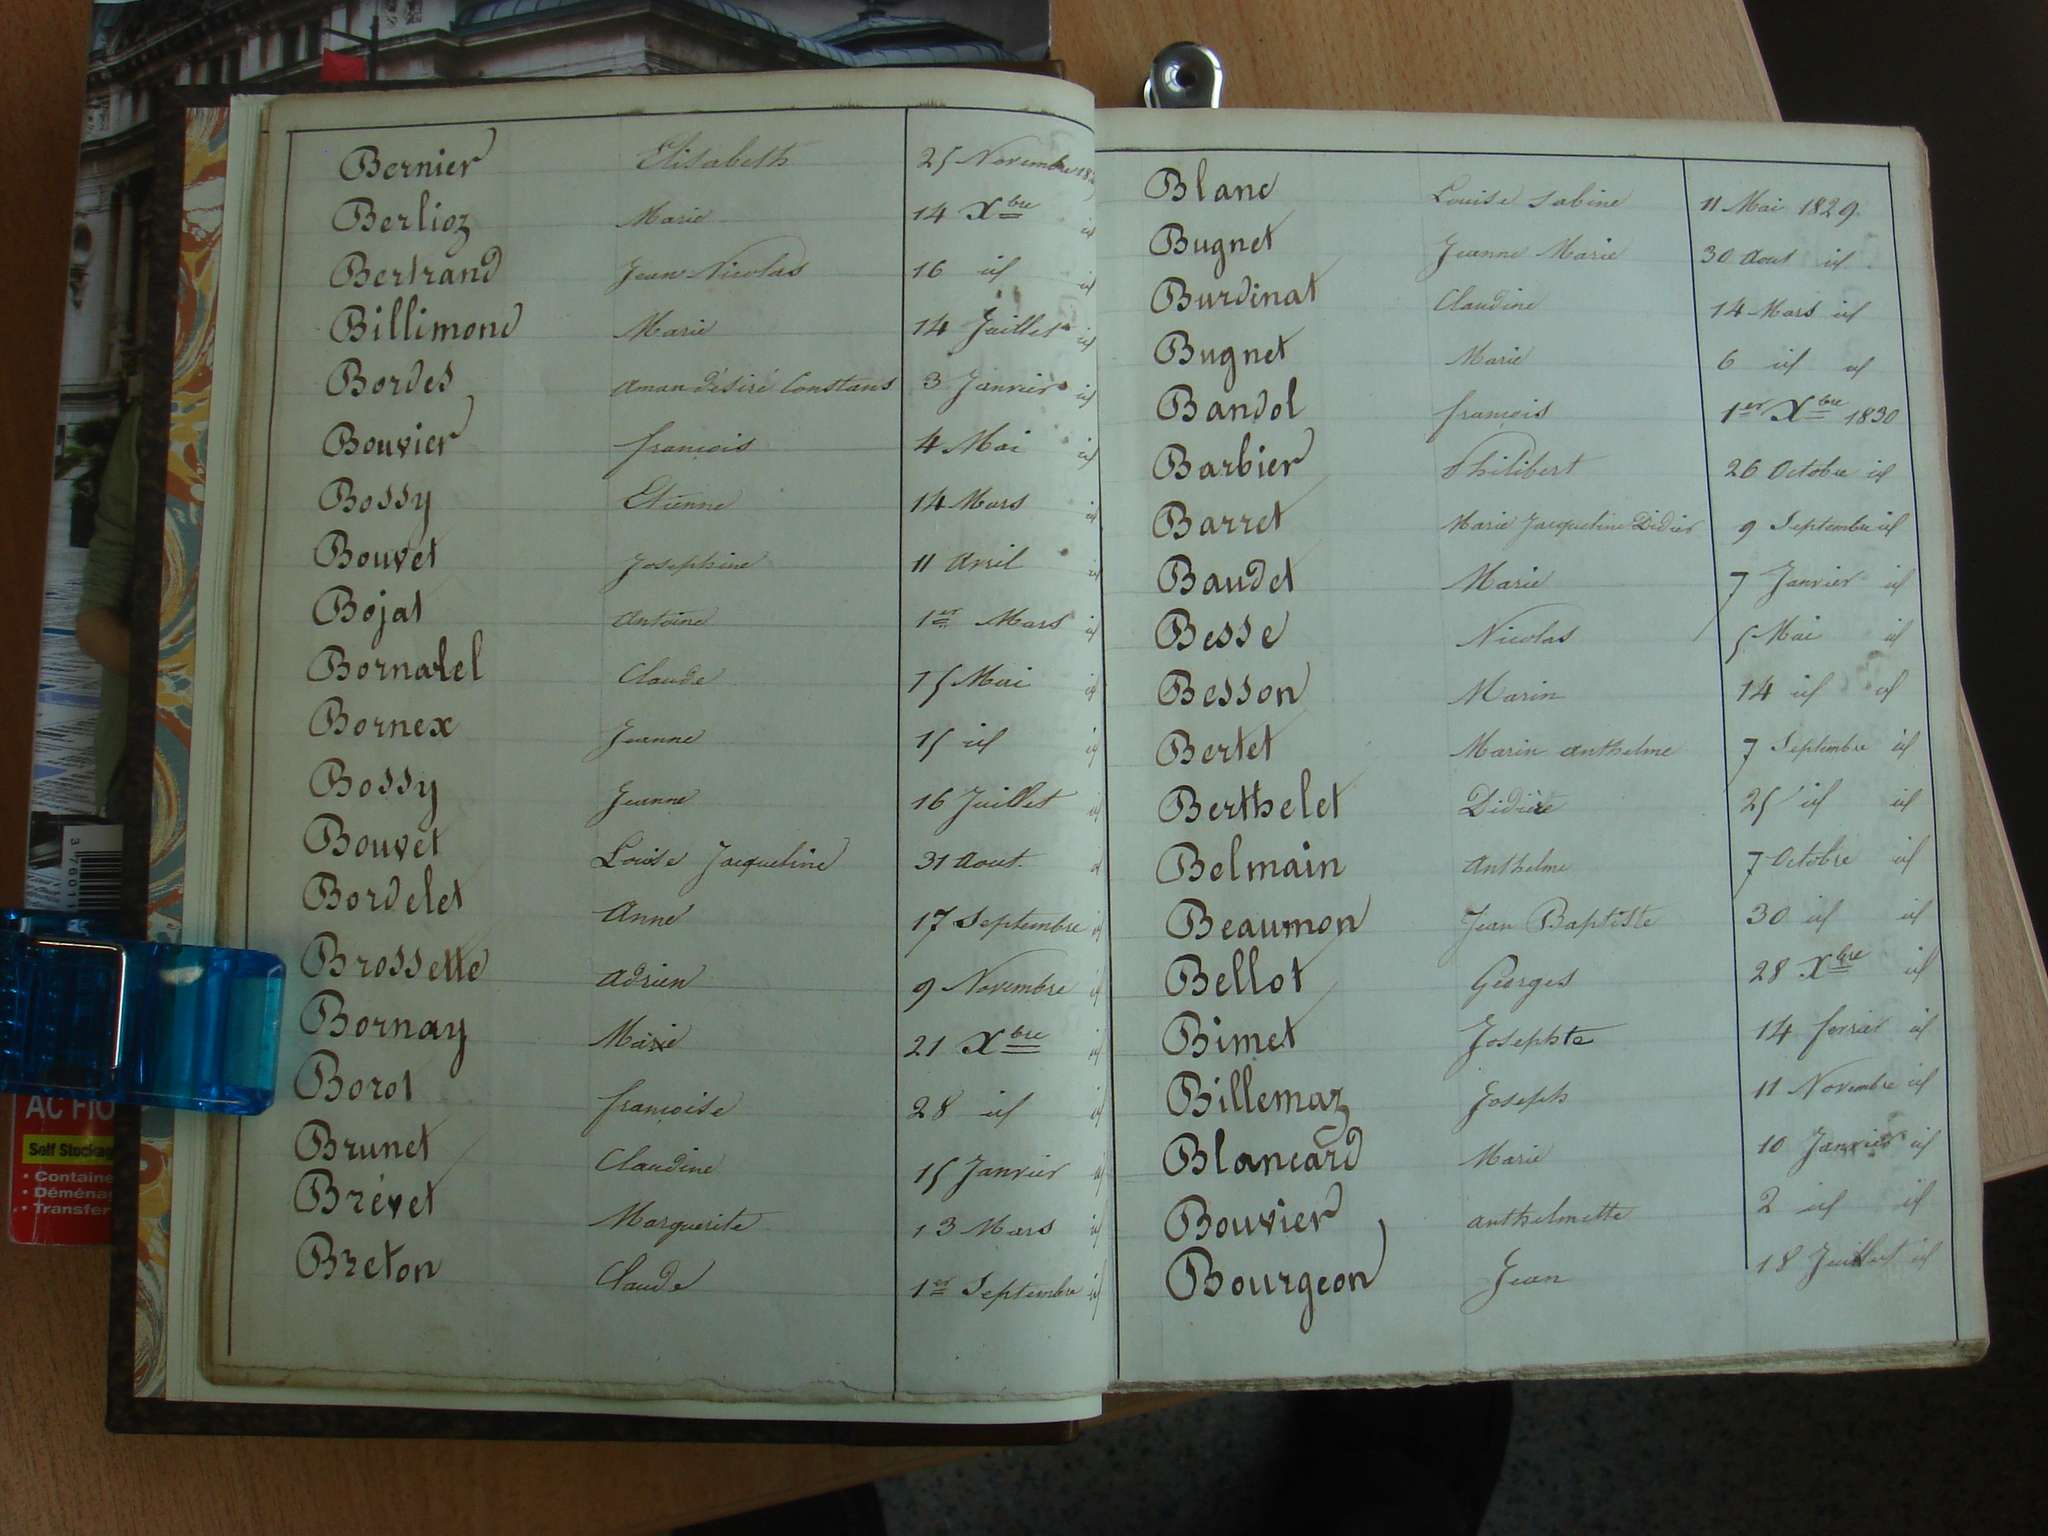 Bernier Elisabeth 25 Novembre
Berlioz Marie 14 Xbre id
Bertrand Jean Nicolas 16 id id
Billimond Marie 14 Juillet id
Bordes Aman désiré Constans 3 Janvier id
Bouvier françois 4 Mai id
Bossy Etienne 14 Mars id
Bouvet Josephine 11 Avril id
Bojat Antoine 1er Mars id
Bornatel Claude 15 Mai id
Bornex Jeanne 15 id id
Bossy Jeanne 16 Juillet id
Bouvet Louise Jacqueline 31 Aout id
Bordelet Anne 17 Septembre id
Brossette Adrien 9 Novembre id
Bornay Marie 21 Xbre id
Borot françoise 28 id id
Brunet Claudine 15 Janvier id
Brévet Marguerite 13 Mars id
Breton Claude 1er Septembre id
Blanc Louise Sabine 11 Mai 1829.
Bugnet Jeanne Marie 30 Aout id
Burdinat Claudine 14 Mars id
Bugnet Marie 6 id id
Bandol françois 1er Xbre 1830
Barbier Philibert 26 Octobre id
Barret Marie Jacqueline Didier 9 Septembre id
Baudet Marie 7 Janvier id
Besse Nicolas 5 Mai id
Besson Marin 14 id id
Bertet Marin anthelme 7 Septembre id
Berthelet Didière 25 id id
Belmain Anthelme 7 Octobre id
Beaumon Jean Baptiste 30 id id
Bellot Georges 28 Xbre id
Bimet Josephte 14 fevrier id
Billemaz Joseph 11 Novembre id
Blancard Marie 10 Janvier id
Bouvier anthelmette 2 id id
Bourgeon Jean 18 Juillet id
3 76011
AC FIO
Self Stockag
• Containe
• Déména
• Transfer